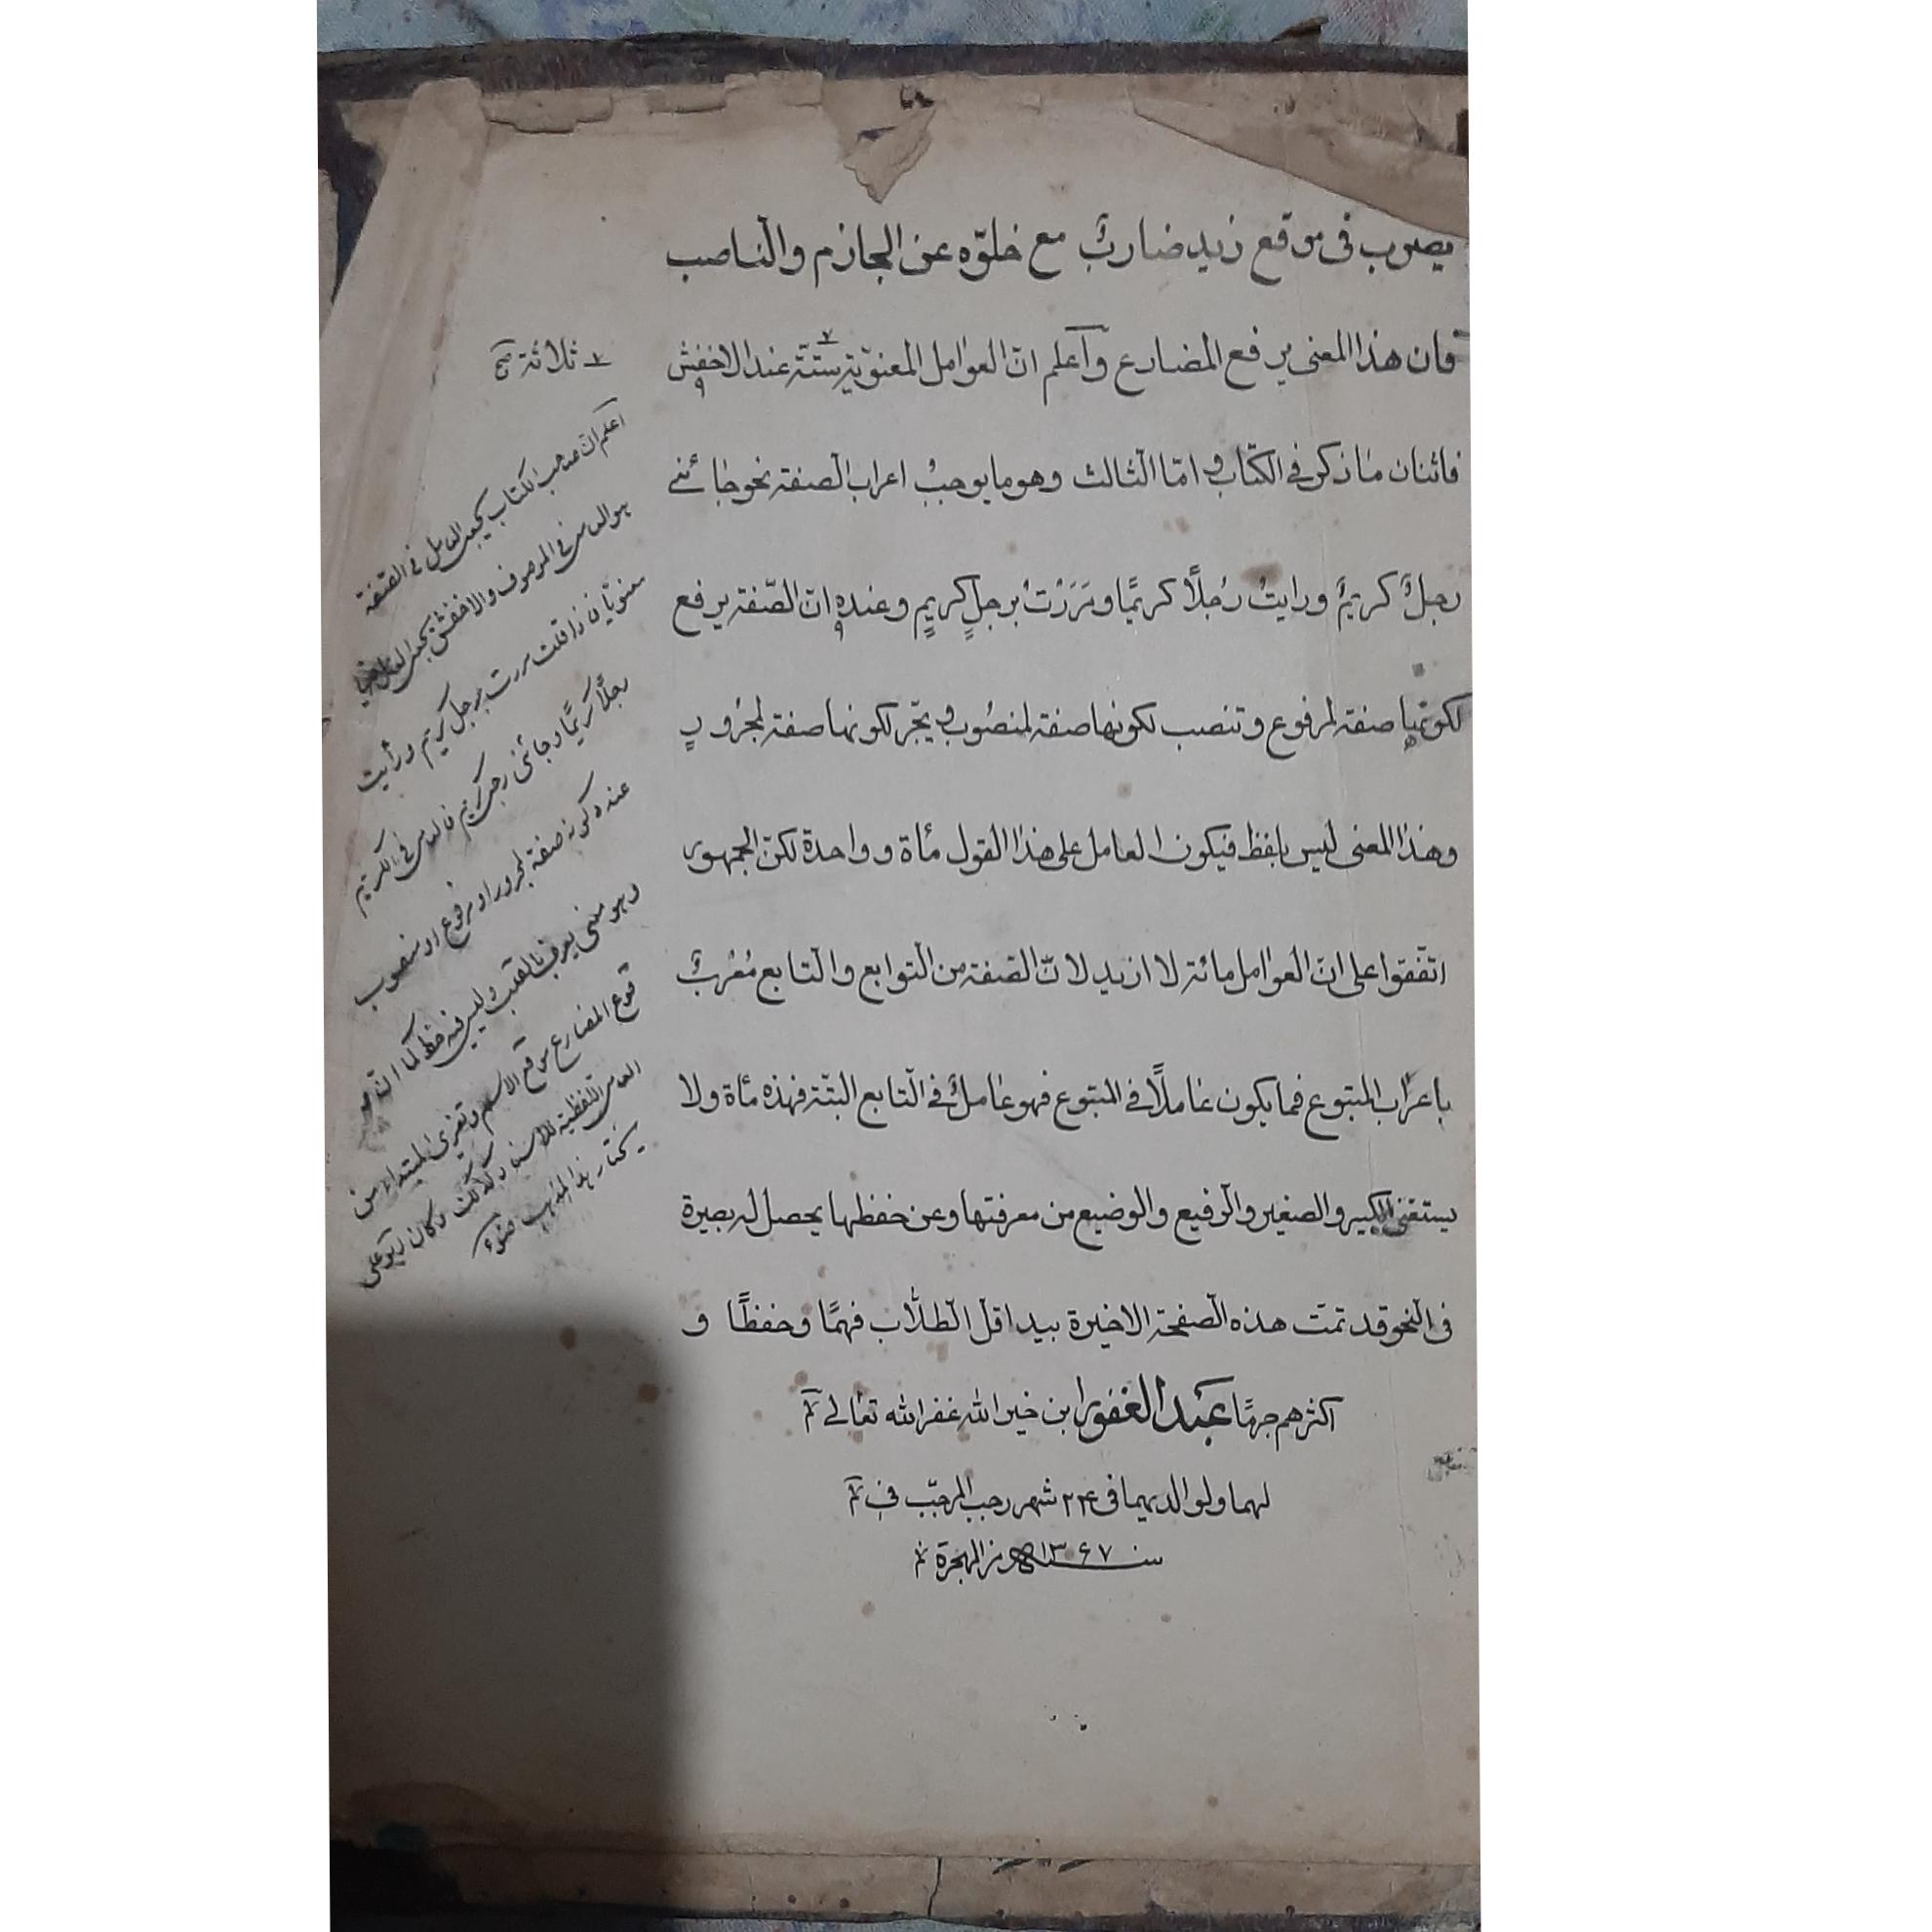 يصوب فى موقع زيد ضاربٌ مع خلوّه عن الجازم والنّاصب
فان هذا المعنى يرفع المضارع وآعلم انّ العوامل المعنويّة ستّة عند الاخفش
فاثنان ما ذكر فى الكتاب و امّا الثالث وهو ما يوجبُ اعراب الصفة نحو جائنى
رجلٌ كريمٌ ورايتُ رُجلًا كريمًا ومَرَرْتُ برجلٍ كريمٍ وعنده انّ الصّفة يرفع
لكونها صفة لمرفوع وتنصب لكونها صفة لمنصُوب و يجّر لكونها صفة لمجرُورٍ
وهذا المعنى ليس بلفظ فيكون العامل على هذا القول مأة و واحدة لكنّ الجمهور
اتفّقوا على انّ العوامل مائة لا ازيد لانّ الصّفة من التوابع والتابع مُعْربٌ
باعراب المتبوع فما يكون عاملًا فى المتبوع فهو عاملٌ فى التابع البتّة فهذه مأة ولا
يستغنى الكبير والصغير والرفيع والوضيع من معرفتها وعن حفظها يحصل له بصيرة
فى النحو قد تمّت هذه الصفحة الاخيرة بيد اقلّ الطلّاب فهمًا وحفظًا و
اكثرهم جرمًا عَبْد الغفور ابن خير الله غفر الله تعالى
لهما ولوالديهما فى ۲۴ شهر رجب المرجّب فى
سنه ۱۳۶۷ من الهجرة
ثلاثة صح
اعلم ان صاحب الكتاب يجعل العامل فى الصّفة
هو العامل فى الموصوف والاخفش يجعل العامل فيها
معنويًا فاذا قلت مررت برجل كريم ورأيت
رجلًا كريمًا وجائنى رجل كريم فالعامل فى الكريم
عنده كونه صفة لمجرور او مرفوع او منصوب
وهو معنى يعرف بالقلب وليس فيه حظ
المضارع موقع الاسم وتعرى المبتداء من
العوامل اللفظية للاسناد وكذلك وكان ابو على
يختار هذا المذهب